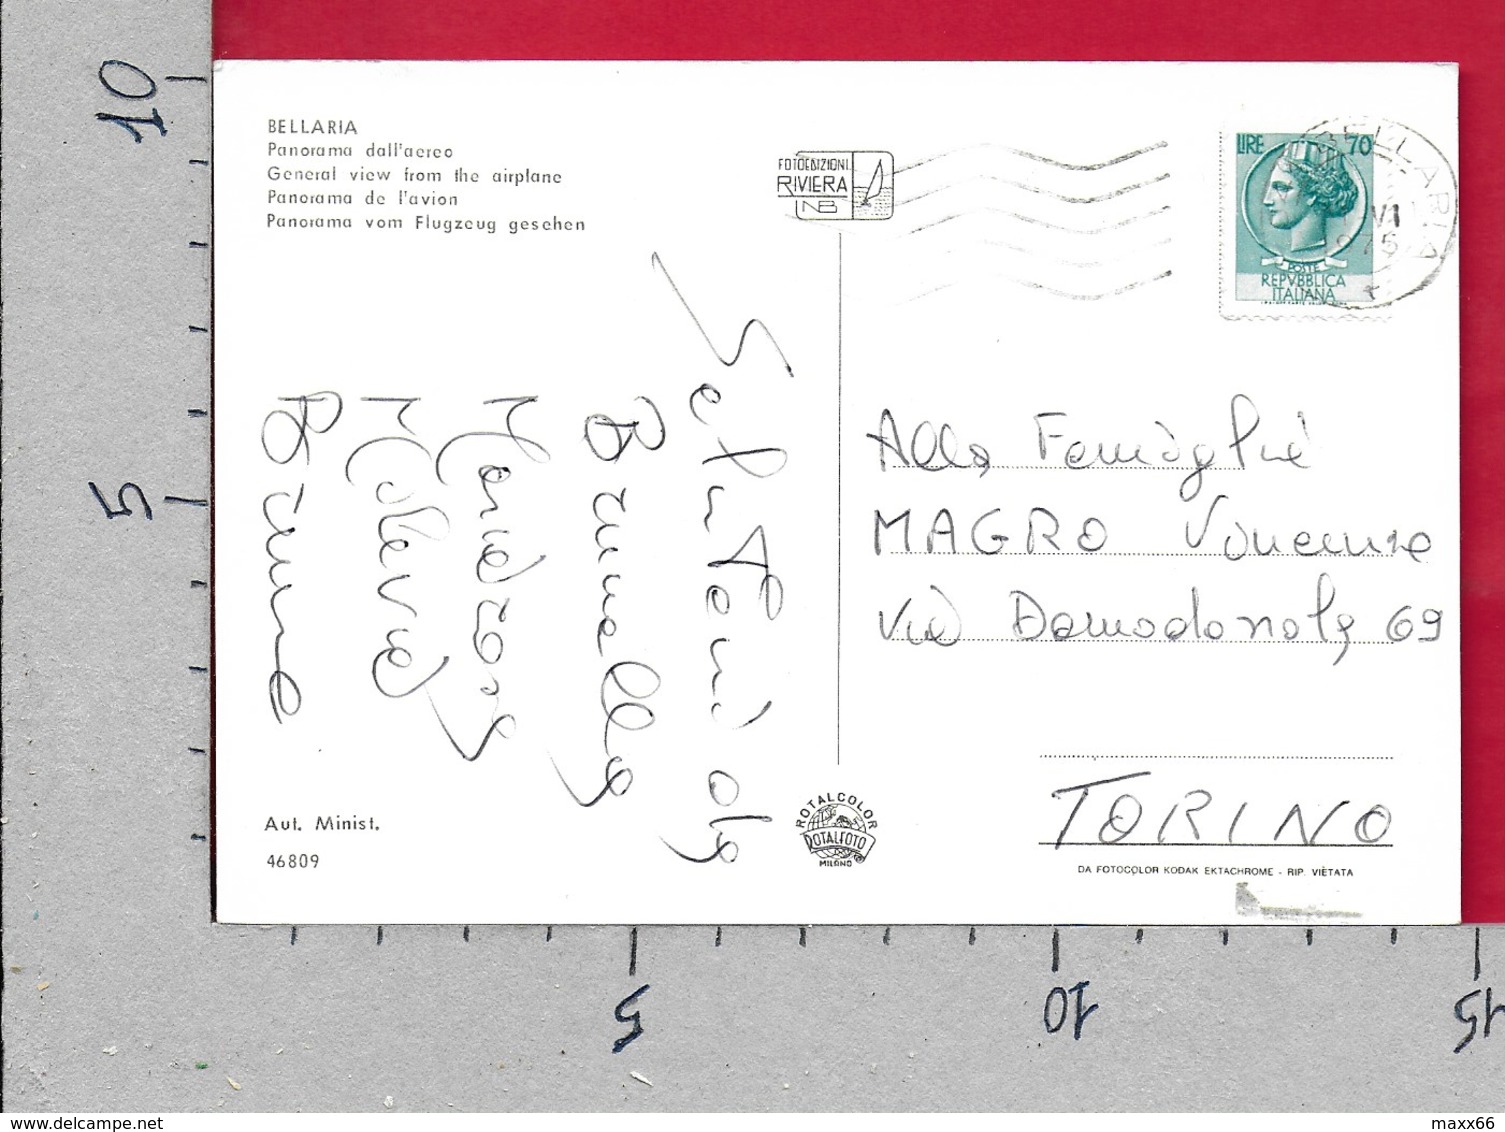 BELLARIA
Panorama dall'aereo
General view from the airplane
Panorama de l'avion
Panorama vom Flugzeug gesehen
FOTOEDIZIONI
RIVIERA
LIRE 70
POSTE
REPVBBLICA
ITALIANA
BELLARIA
VI
1975
Saluti da
Brunella
Bruno
Alla Famiglia
MAGRO Vincenzo
Via Domodossola 69
TORINO
Aut. Minist.
46809
ROTALCOLOR
ROTALFOTO
MILANO
DA FOTOCOLOR KODAK EKTACHROME - RIP. VIETATA
10
5
5
10
15
www.delcampe.net
maxx66